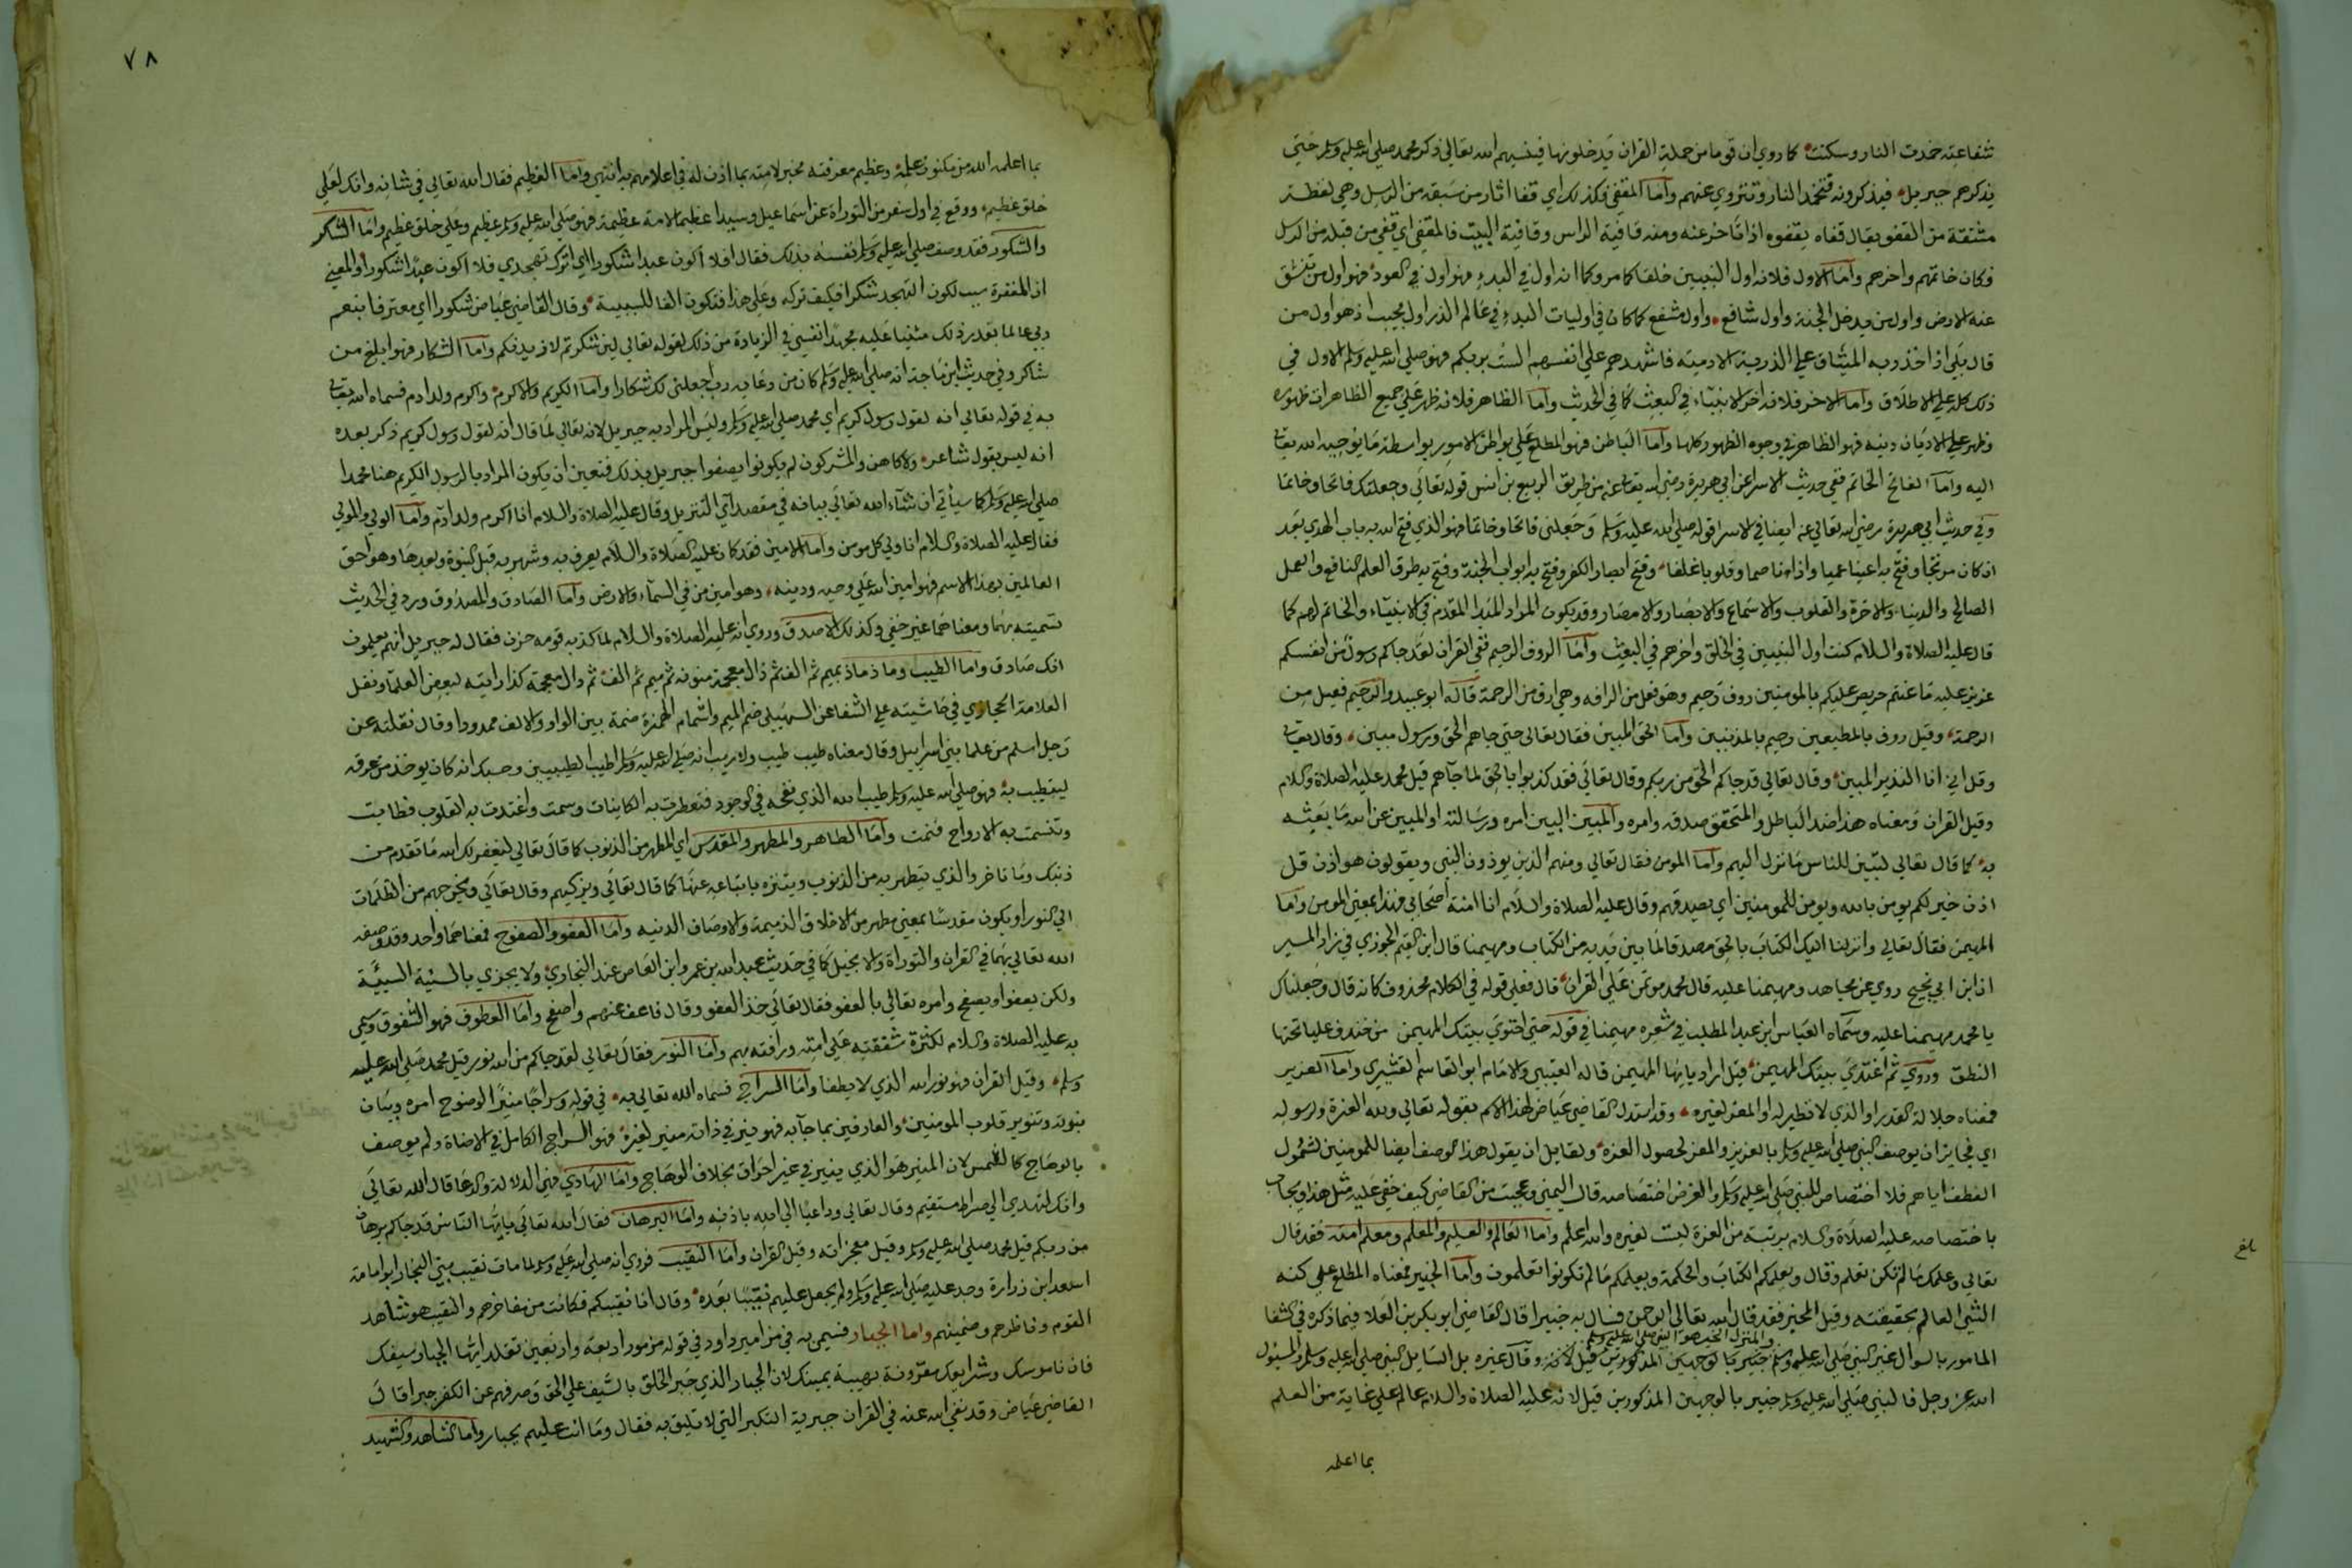 شفاعته خمدت النار وسكنت كما روي ان قوما من حملة القران يدخلونها فينسيهم الله تعالى ذكر محمد صلى الله عليه وسلم حتى
يذكرهم جبريل فيذكرونه فتخمد النار وتنزوي عنهم واما المقفى فكذلك اي قفا اثار من سبقه من الرسل وهي لفظة
مشتقة من القفو يقال قفاه يقفوه اذا تاخر عنه ومنه قافية الراس وقافية البيت فالمقفى اي قفى من قبله من الرسل
فكان خاتمهم واخرهم واما الاول فلانه اول النبيين خلقا كما مر وكما انه اول في البدء فهو اول في العود فهو اول من تنشق
عنه الارض واول من يدخل الجنة واول شافع واول مشفع كما كان في اوليات البدء في عالم الذر اول مجيب اذ هو اول من
قال بلى اذ اخذ ربه الميثاق على الذرية الادمية فاشهدهم على انفسهم الست بربكم فهو صلى الله عليه وسلم الاول في
ذلك كله على الاطلاق واما الاخر فلانه اخر الانبياء في البعث كما في الحديث واما الظاهر فلانه ظهر على جميع الظاهرات ظهوره
وظهر على الاديان دينه فهو الظاهر في وجوه الظهور كلها واما الباطن فهو المطلع على بواطن الامور بواسطة ما يوحيه الله تعالى
اليه واما الفاتح الخاتم ففي حديث الاسرا عن ابي هريرة رضي الله تعالى عنه من طريق الربيع بن انس قوله تعالى وجعلتك فاتحا وخاتما
وفي حديث ابي هريرة رضي الله تعالى عنه ايضا في الاسرا قوله صلى الله عليه وسلم وجعلني فاتحا وخاتما فهو الذي فتح الله به باب الهدى بعد
ان كان مرتجا وفتح به اعينا عميا واذانا صما وقلوبا غلفا وفتح امصار الكفر وفتح به ابواب الجنة وفتح به طرق العلم النافع والعمل
الصالح والدنيا والاخرة والقلوب والاسماع والابصار والامصار وقد يكون المراد المبدا المقدم في الانبياء والخاتم لهم كما
قال عليه الصلاة والسلام كنت اول النبيين في الخلق واخرهم في البعث واما الروف الرحيم ففي القران لقد جاكم رسول من انفسكم
عزيز عليه ما عنتم حريص عليكم بالمومنين روف رحيم وهو فعل من الرافه وهي ارق من الرحمة قاله ابو عبيد والرحيم فعيل من
الرحمة وقيل روف بالمطيعين رحيم بالمذنبين واما الحق المبين فقال تعالى حتى جاهم الحق ورسول مبين وقال تعالى
وقل اني انا النذير المبين وقال تعالى قد جاكم الحق من ربكم وقال تعالى فقد كذبوا بالحق لما جآهم قيل محمد عليه الصلاة والسلام
وقيل القران ومعناه هنا ضد الباطل والمتحقق صدقه وامره والمبين البين امره ورسالته او المبين عن الله ما بعثه
به كما قال تعالى لتبين للناس ما نزل اليهم واما المومن فقال تعالى ومنهم الذين يوذون النبي ويقولون هو اذن قل
اذن خير لكم يومن بالله ويومن للمومنين اي يصدقهم وقال عليه الصلاة والسلام انا امنة اصحابي فهذا بمعنى المومن واما
المهيمن فقال تعالى وانزلنا اليك الكتاب بالحق مصدقا لما بين يديه من الكتاب ومهيمنا قال ابن القيم الجوزي في زاد المسير
ان ابن ابي نجيح روي عن مجاهد ومهيمنا عليه قال محمد موتمن على القران قال فعلى قوله في الكلام محذوف كانه قال وجعلناك
يا محمد مهيمنا عليه وسماه العباس ابن عبد المطلب في شعره مهيمنا في قوله حتى احتوى بيتك المهيمن من خندف عليا تحتها
النطق وروي ثم اغتدي بيتك المهيمن قيل اراد يا ايها المهيمن قاله القتيبي والامام ابو القاسم القشيري واما العزيز
فمعناه جلالة القدر او الذي لا نظير له او المعز لغيره وقد استدل القاضي عياض لهذا الاسم بقوله تعالى ولله العزة ولرسوله
اي فجايز ان يوصف النبي صلى الله عليه وسلم بالعزيز والمعز لحصول العزة ولقايل ان يقول هذا الوصف ايضا للمومنين لشمول
العطف اياهم فلا اختصاص للنبي صلى الله عليه وسلم والغرض اختصاصه قال اليمني وعجبت من القاضي كيف خفي عليه مثل هذا ويجاب
باختصاصه عليه الصلاة والسلام برتبة من العزة ليست لغيره والله اعلم واما العالم والعليم والمعلم ومعلم امته فقد قال
تعالى وعلمك ما لم تكن تعلم وقال ويعلمكم الكتاب والحكمة ويعلمكم ما لم تكونوا تعلمون واما الخبير فمعناه المطلع على كنه
الشي العالم بحقيقته وقيل المخبر فقد قال الله تعالى الرحمن فسال به خبيرا قال القاضي ابو بكر بن العلا فيما ذكره في الشفا
المامور بالسوال غير النبي صلى الله عليه وسلم وقال غيره بل السايل النبي صلى الله عليه وسلم والمسئول
الله عز وجل فالنبي صلى الله عليه وسلم خبير بالوجهين المذكورين قيل لانه عليه الصلاة والسلام عالم على غاية من العلم
بما اعلمه
بلغ
٧٨
بما اعلمه الله من مكنون علمه وعظيم معرفته مخبر لامته بما اذن له في اعلامهم به انتهى واما العظيم فقال الله تعالى في شانه وانك لعلى
خلق عظيم ووقع في اول سفر من التوراة عن اسماعيل وسيلد عظيما لامة عظيمة فهو صلى الله عليه وسلم عظيم وعلى خلق عظيم واما الشاكر
والشكور فقد وصف صلى الله عليه وسلم نفسه بذلك فقال افلا اكون عبدا شكورا اي اترك تهجدي فلا اكون عبدا شكورا والمعنى
ان المغفرة سبب لكون التهجد شكرا فكيف تركه وعلى هذا فتكون الفا للسببية وقال القاضي عياض شكورا اي معترفا بنعم
ربي عالما بقدر ذلك مثنيا عليه مجهدا نفسي في الزيادة من ذلك لقوله تعالى لين شكرتم لازيدنكم واما الشكار فهو ابلغ من
شاكر وفي حديث ابن ماجة انه صلى الله عليه وسلم كان من دعايه رب اجعلني لك شكارا واما الكريم والاكرم واكرم ولد ادم فسماه الله تعالى
به في قوله تعالى انه لقول رسول كريم اي محمد صلى الله عليه وسلم وليس المراد به جبريل لانه تعالى لما قال انه لقول رسول كريم ذكر بعده
انه ليس بقول شاعر ولا كاهن والمشركون لم يكونوا يصفوا جبريل بذلك فتعين ان يكون المراد بالرسول الكريم هنا محمدا
صلى الله عليه وسلم كما سيأتي ان شاء الله تعالى بيانه في مقصد آي التنزيل وقال عليه الصلاة والسلام انا اكرم ولد ادم واما الولي والمولى
فقال عليه الصلاة والسلام انا ولي كل مومن واما الامين فقد كان عليه الصلاة والسلام يعرف به وشهر به قبل النبوة وبعدها وهو احق
العالمين بهذا الاسم فهو امين الله على وحيه ودينه وهو امين من في السمآء والارض واما الصادق والمصدوق ورد في الحديث
تسميته بهما ومعناهما غير خفي وكذلك الاصدق وروي انه عليه الصلاة والسلام لما كذبه قومه حزن فقال له جبريل انهم يعلمون
انك صادق واما الطيب وماذ ماذ بميم ثم الف ثم ذال معجمة منونة ثم ميم ثم الف ثم دال معجمة كذا رايته لبعض العلما ونقل
العلامة الحجازي في حاشيته على الشفا عن السهيلي ضم الميم واشمام الهمزة ضمة بين الواو والالف ممدودا وقال نقلته عن
رجل اسلم من علما بني اسرايل وقال معناه طيب طيب ولا ريب انه صلى الله عليه وسلم اطيب الطيبين وحسبك انه كان يوخذ من عرقه
ليتطيب به فهو صلى الله عليه وسلم طيب الله الذي نفحه في الوجود فتعطرت به الكاينات وسمت واغتدت به القلوب فطابت
وتنسمت به الارواح فنمت واما الطاهر والمطهر والمقدس اي المطهر من الذنوب كما قال تعالى ليغفر لك الله ما تقدم من
ذنبك وما تاخر والذي يتطهر به من الذنوب ويتنزه باتباعه عنها كما قال تعالى ويزكيهم وقال تعالى ويخرجهم من الظلمات
الى النور او يكون مقدسا بمعنى مطهر من الاخلاق الذميمة والاوصاف الدنيه واما العفو والصفوح فمعناهما واحد وقد وصفه
الله تعالى بهما في القران والتوراة والانجيل كما في حديث عبد الله بن عمرو ابن العاص عند البخاري ولا يجزي بالسيية السيية
ولكن يعفو او يصفح وامره تعالى بالعفو فقال تعالى خذ العفو وقال فاعف عنهم واصفح واما العطوف فهو الشفوق وسمي
به عليه الصلاة والسلام لكثرة شفقته على امته ورافته بهم واما النور فقال تعالى لقد جاكم من الله نور قيل محمد صلى الله عليه
وسلم وقيل القران فهو نور الله الذي لا يطفا واما السراج فسماه الله تعالى به في قوله وسراجا منيرا لوضوح امره وبيان
نبوته وتنوير قلوب المومنين والعارفين بما جآ به فهو نير في ذاته منير لغيره فهو السراج الكامل في الاضاة ولم يوصف
بالوهاج كالشمس لان المنير هو الذي ينير في غير احراق بخلاف الوهاج واما الهادي فهي الدلالة والدعا قال الله تعالى
وانك لتهدي الى صراط مستقيم وقال تعالى وداعيا الى الله باذنه واما البرهان فقال الله تعالى يا ايها الناس قد جاكم برهان
من ربكم قيل محمد صلى الله عليه وسلم وقيل معجزاته وقيل القران واما النقيب فروي انه صلى الله عليه وسلم لما مات نقيب بني النجار ابو امامة
اسعد ابن زرارة وجد عليه صلى الله عليه وسلم ولم يجعل عليهم نقيبا بعده وقال انا نقيبكم فكانت من مفاخرهم والنقيب هو شاهد
القوم وناظرهم وضمينهم واما الجبار فسمي به في مزامير داود في قوله من مزمور اربعة واربعين تقلد ايها الجبار سيفك
فان ناموسك وشرايعك مقرونة بهيبة يمينك لان الجبار الذي جبر الخلق بالسيف على الحق وصرفهم عن الكفر جبرا قال
القاضي عياض وقد نفى الله عنه في القران جبرية التكبر التي لا تليق به فقال وما انت عليهم بجبار واما الشاهد والشهيد